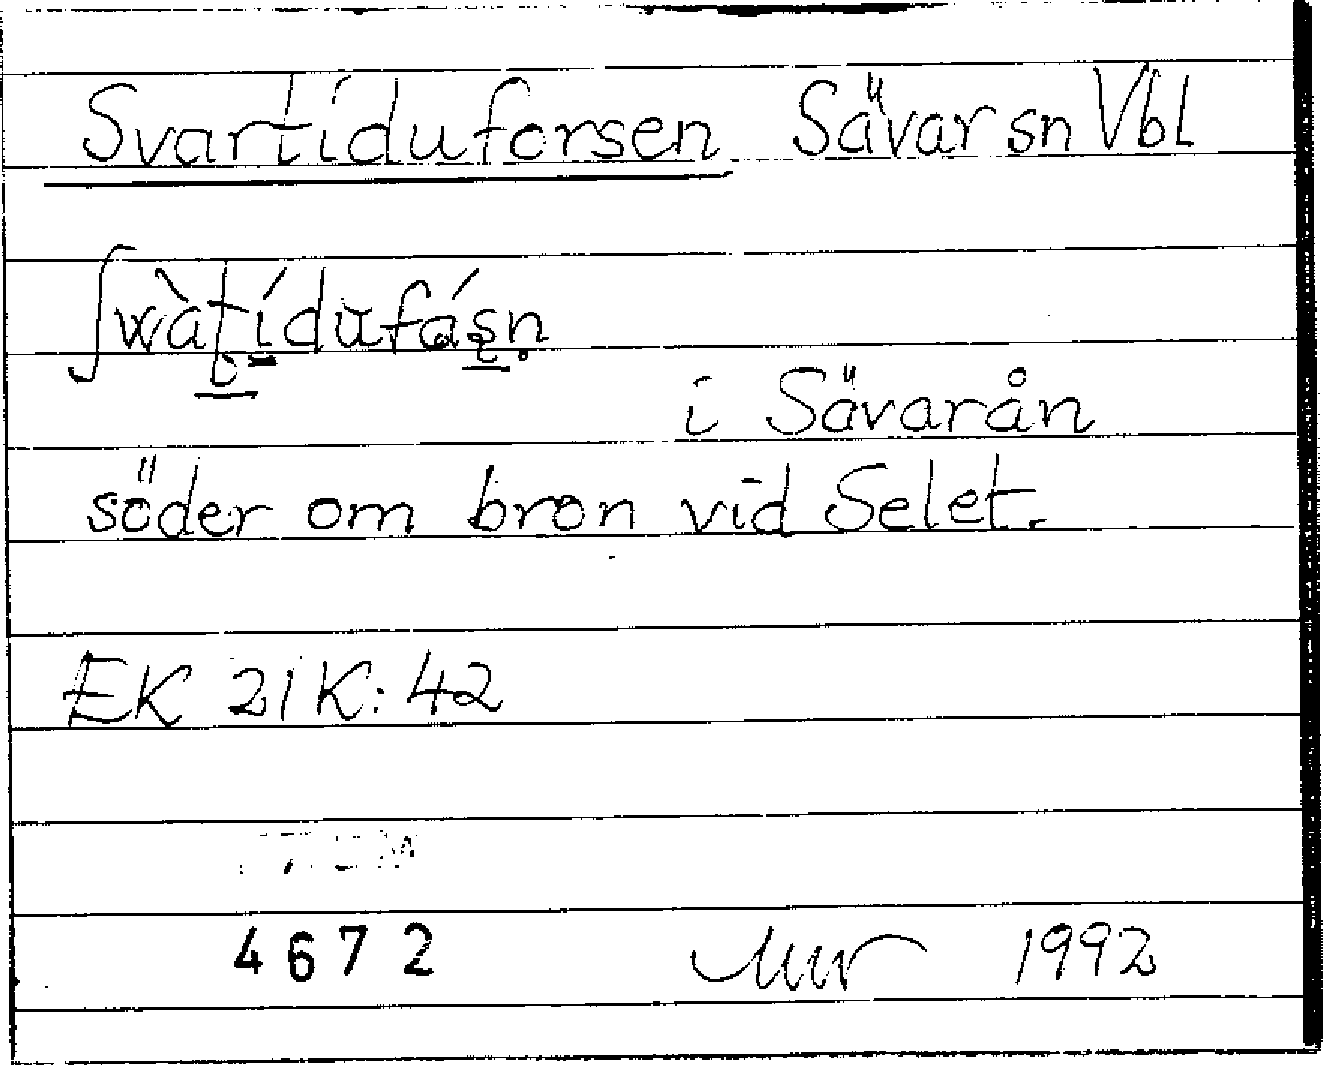 Svartiduforsen Sävar sn Vbl
i Sävarån
söder om bron vid Selet.
EK 21K:42
4672 1992